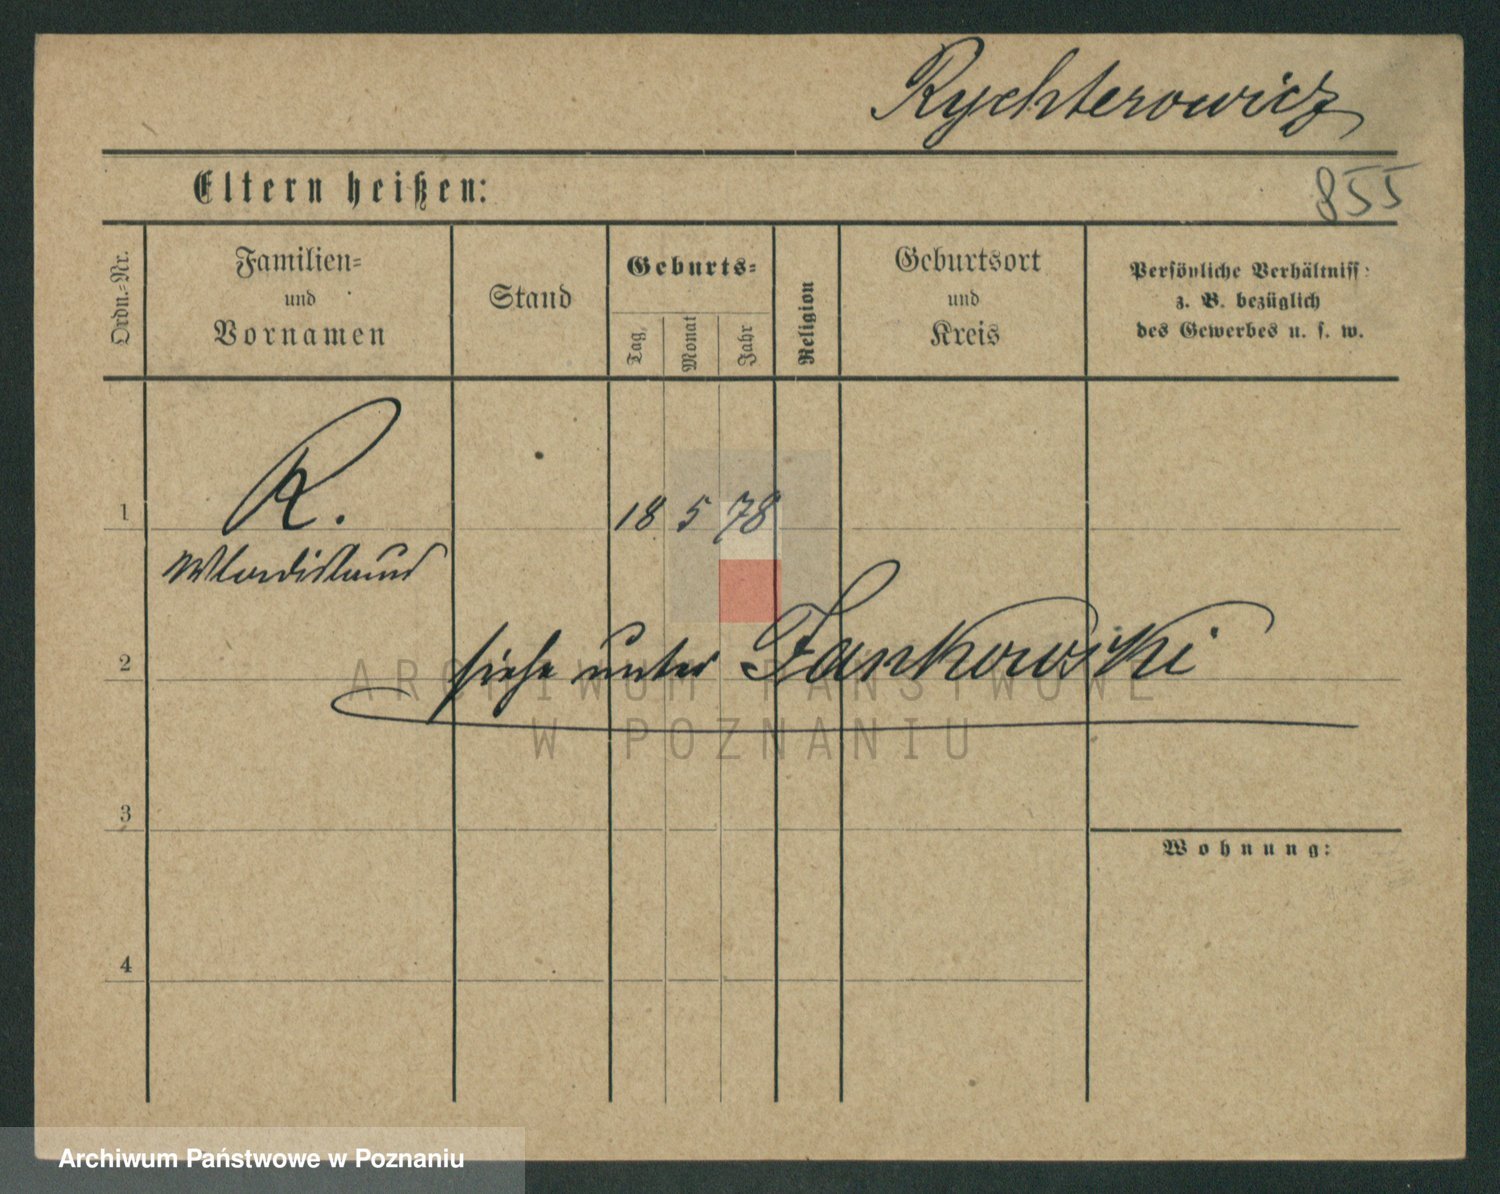 Rychterowicz
Eltern heißen:
855
Ordn.-Nr.
Familien-
und
Vornamen
Stand
Geburts-
Tag,
Monat
Jahr
Religion
Geburtsort
und
Kreis
Persönliche Verhältniss:
z. B. bezüglich
des Gewerbes u. s. w.
1
R.
18 5 78
Wladislaus
2
siehe unter Jankowski
ARCHIWUM PAŃSTWOWE
W POZNANIU
3
Wohnung:
4
Archiwum Państwowe w Poznaniu